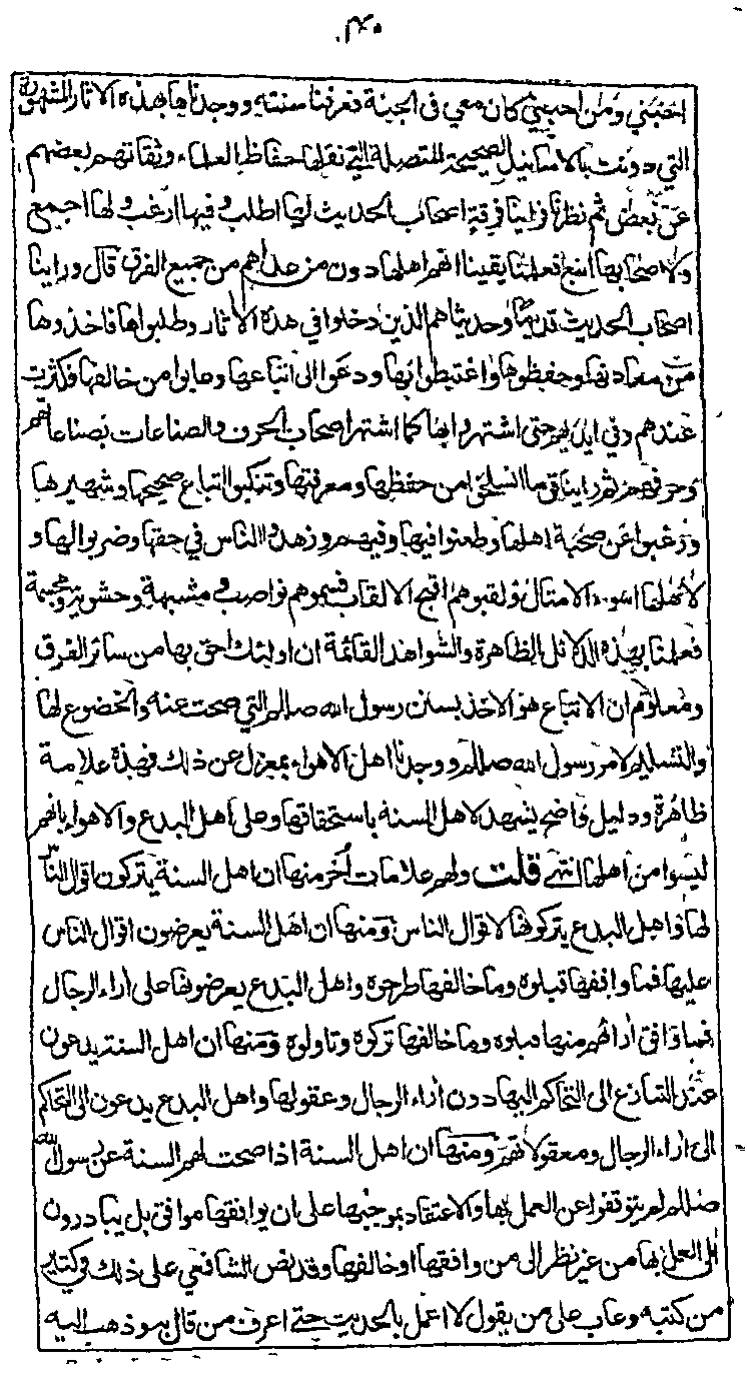 ٣٤٠
احبني ومن احبني كان معي في الجنة فعرفنا سنته ووجدناها بهذه الاثار المشهورة
التي دونت بالاسانيد الصحيحة المتصلة التي نقلها حفاظ العلماء وثقاتهم بعضهم
عن بعض ثم نظرنا فراينا فرقة اصحاب الحديث لها اطلب وفيها ارغب ولها اجمع
ولاصحابها اتبع فعلمنا يقينا انهم اهلها دون من عداهم من جميع الفرق قال وراينا
اصحاب الحديث قديما وحديثا هم الذين دخلوا في هذه الاثار وطلبوها فاخذوها
من معادنها وحفظوها واغتبطوا بها ودعوا الى اتباعها وعابوا من خالفها فكثرت
عندهم وفي ايديهم حتى اشتهروا بها كما اشتهر اصحاب الحرف والصناعات بصناعاتهم
وحرفهم ثم راينا قوما انسلخوا من حفظها ومعرفتها وتنكبوا اتباع صحيحها وشهيرها
ورغبوا عن صحبة اهلها وطعنوا فيها وفيهم وزهدوا الناس في حقها وضربوا لها و
لاهلها اسوء الامثال ولقبوهم اقبح الالقاب فسموهم نواصب ومشبهة وحشوية ومجسمة
فعلمنا بهذه الدلائل الظاهرة والشواهد القائمة ان اولئك احق بها من سائر الفرق
ومعلوم ان الاتباع هو الاخذ بسنن رسول الله صللم التي صحت عنه والخضوع لها
والتسليم لامر رسول الله صللم ووجدنا اهل الاهواء بمعزل عن ذلك فهذه علامة
ظاهرة ودليل واضح يشهد لاهل السنة باستحقاقها وعلى اهل البدع والاهواء بانهم
ليسوا من اهلها انتهى قلت ولهم علامات اخر منها ان اهل السنة يتركون اقوال الناس
لها واهل البدع يتركونها لاقوال الناس ومنها ان اهل السنة يعرضون اقوال الناس
عليها فما وافقها قبلوه وما خالفها طرحوه واهل البدع يعرضونها على اراء الرجال
فما وافق اراءهم منها قبلوه وما خالفها تركوه وتاولوه ومنها ان اهل السنة يدعون
عند التنازع الى التحاكم اليها دون اراء الرجال وعقولها واهل البدع يدعون الى التحاكم
الى اراء الرجال ومعقولاتهم ومنها ان اهل السنة اذا صحت لهم السنة عن رسول الله
صللم لم يتوقفوا عن العمل بها والاعتقاد بموجبها على ان يوافقها موافق بل يبادرون
الى العمل بها من غير نظر الى من وافقها او خالفها وقد نص الشافعي على ذلك في كثير
من كتبه وعاب على من يقول لا اعمل بالحديث حتى اعرف من قال به وذهب اليه